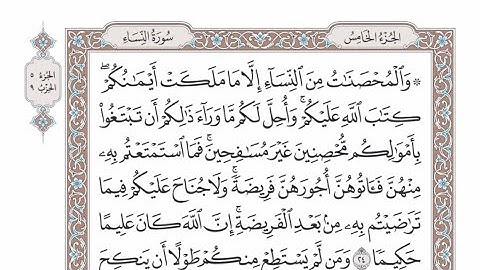 الجُزْءُ الخَامِسُ
سُورَةُ النِّسَاءِ
الجُزْءُ ٥
الحِزْبُ ٩
۞ وَالْمُحْصَنَاتُ مِنَ النِّسَاءِ إِلَّا مَا مَلَكَتْ أَيْمَانُكُمْ ۖ
كِتَابَ اللَّهِ عَلَيْكُمْ ۚ وَأُحِلَّ لَكُم مَّا وَرَاءَ ذَٰلِكُمْ أَن تَبْتَغُوا۟
بِأَمْوَالِكُم مُّحْصِنِينَ غَيْرَ مُسَافِحِينَ ۚ فَمَا اسْتَمْتَعْتُم بِهِۦ
مِنْهُنَّ فَـَٔاتُوهُنَّ أُجُورَهُنَّ فَرِيضَةً ۚ وَلَا جُنَاحَ عَلَيْكُمْ فِيمَا
تَرَاضَيْتُم بِهِۦ مِنۢ بَعْدِ الْفَرِيضَةِ ۚ إِنَّ اللَّهَ كَانَ عَلِيمًا
حَكِيمًا ٢٤ وَمَن لَّمْ يَسْتَطِعْ مِنكُمْ طَوْلًا أَن يَنكِحَ